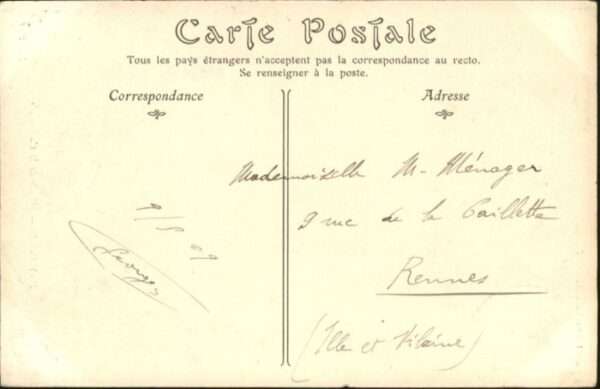 Carte Postale
Tous les pays étrangers n'acceptent pas la correspondance au recto.
Se renseigner à la poste.
Correspondance
Adresse
Mademoiselle M. Ménager
9 rue de la Paillette
Rennes
(Ille et Vilaine)
Georges